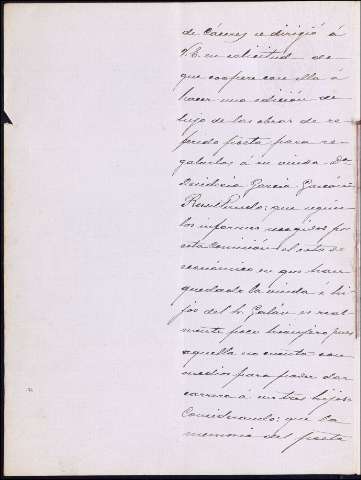 de Cáceres se dirigió á
V.E. en solicitud de
que coopere con ella á
hacer una edición de
lujo de las obras de re-
ferido poeta para re-
galarlas á su viuda Dª
Desideria García Gascón.
Resultando: que según
los informes recogidos por
esta Comisión el estado
económico en que han
quedado la viuda é hi-
jos del Sr. Galán es real-
mente poco lisonjero pues
aquella no cuenta con
medios para poder dar
carrera á sus tres hijos.
Considerando: que la
memoria del poeta